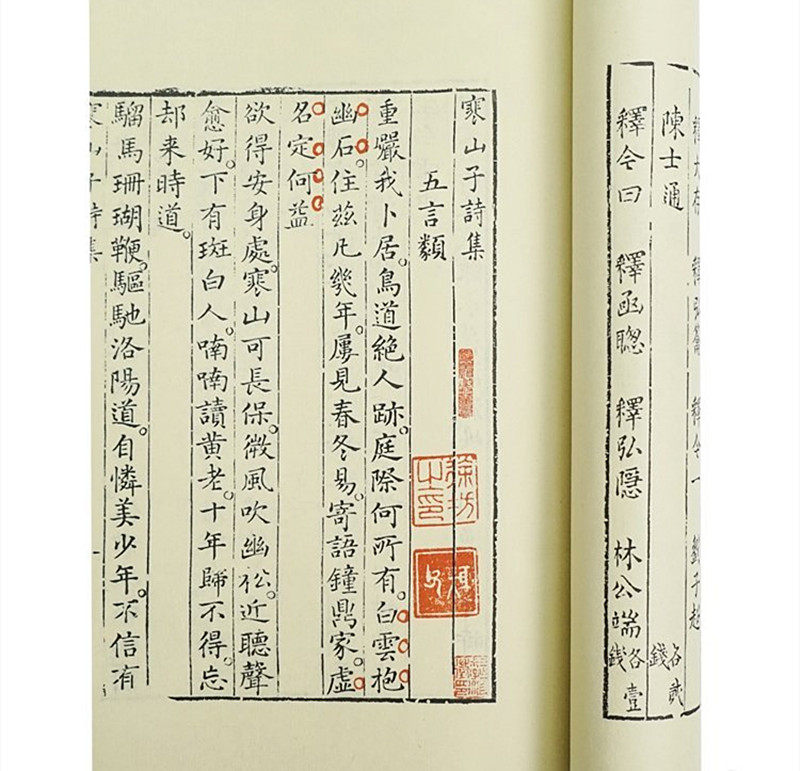 陳士通 各貳錢
釋今曰 釋函聰 釋弘隱 林公端 各壹錢
寒山子詩集
五言類
重巖我卜居。鳥道絕人跡。庭際何所有。白雲抱
幽石。住茲凡幾年。屢見春冬易。寄語鐘鼎家。虛
名定何益
欲得安身處。寒山可長保。微風吹幽松。近聽聲
愈好。下有斑白人。喃喃讀黃老。十年歸不得。忘
却来時道。
騮馬珊瑚鞭。驅馳洛陽道。自憐美少年。不信有
寒山子詩集
徐坊之印